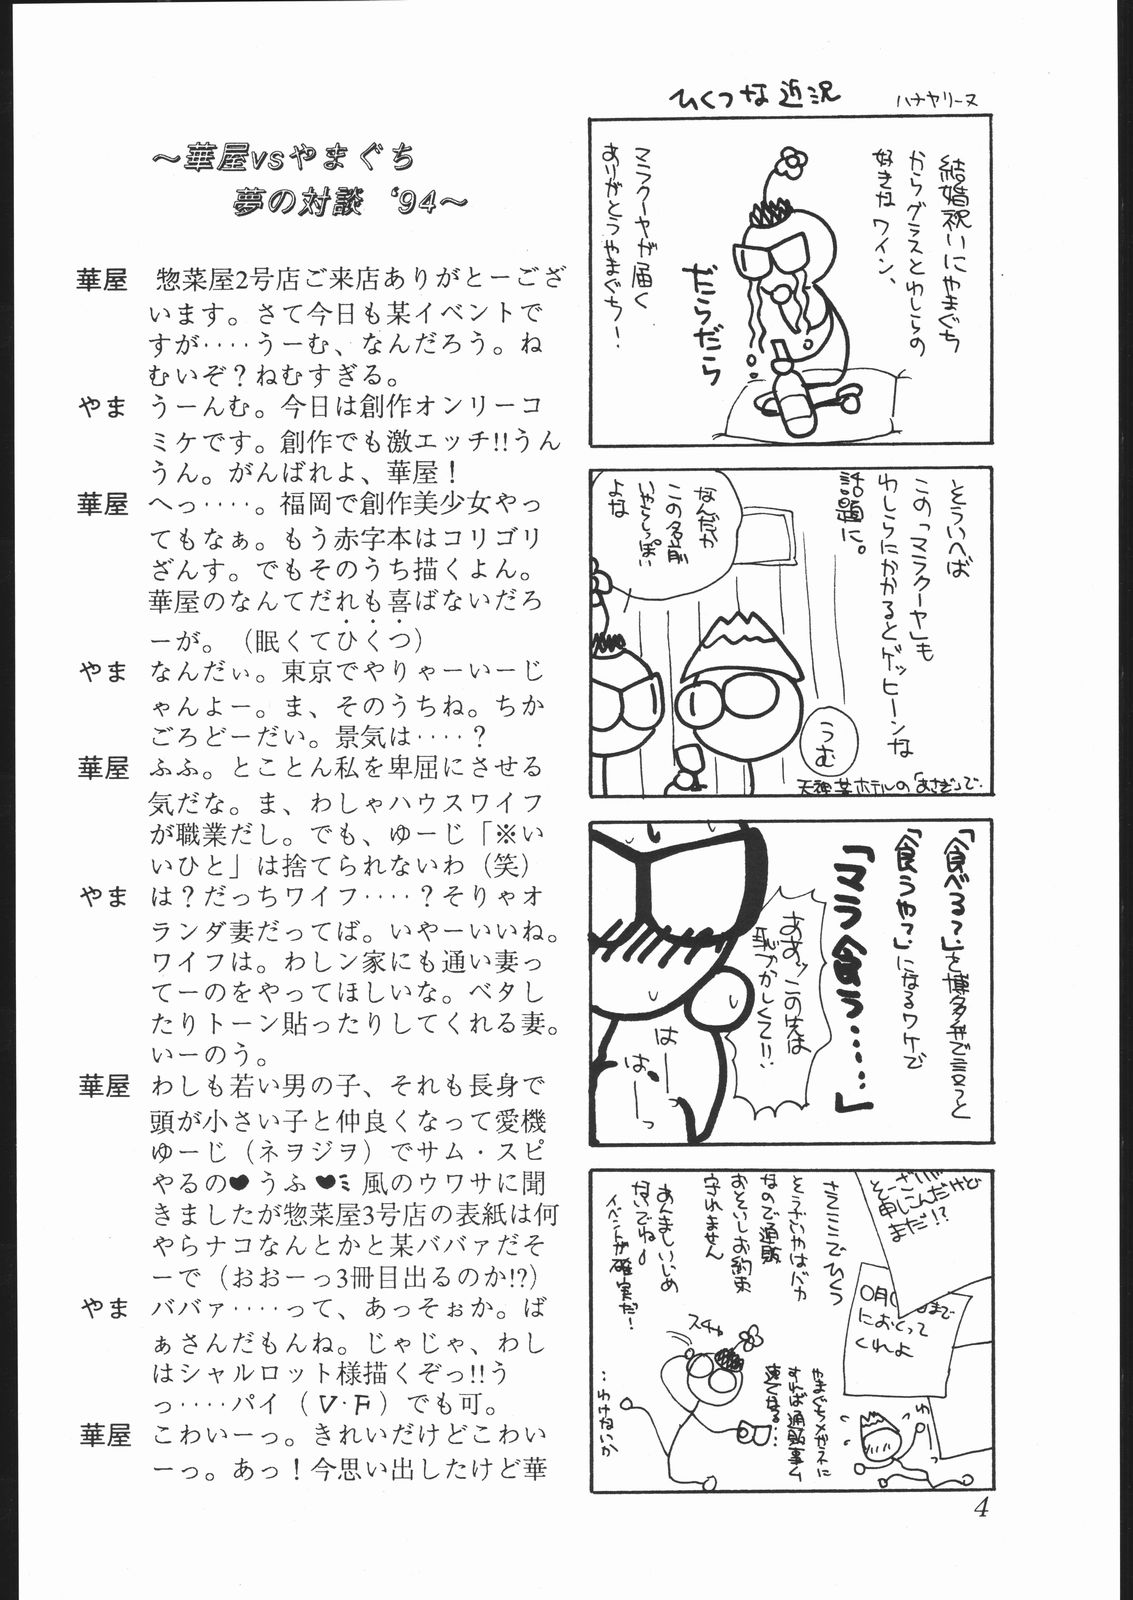 ～華屋vsやまぐち
夢の対談 '94～
華屋 惣菜屋2号店ご来店ありがとーござ
います。さて今日も某イベントで
すが‥‥うーむ、なんだろう。ね
むいぞ？ねむすぎる。
やま うーんむ。今日は創作オンリーコ
ミケです。創作でも激エッチ!!うん
うん。がんばれよ、華屋！
華屋 へっ‥‥。福岡で創作美少女やっ
てもなぁ。もう赤字本はコリゴリ
ざんす。でもそのうち描くよん。
華屋のなんてだれも喜ばないだろ
ーが。（眠くてひくつ）
やま なんだぃ。東京でやりゃーいーじ
ゃんよー。ま、そのうちね。ちか
ごろどーだい。景気は‥‥？
華屋 ふふ。とことん私を卑屈にさせる
気だな。ま、わしゃハウスワイフ
が職業だし。でも、ゆーじ「※い
いひと」は捨てられないわ（笑）
やま は？だっちワイフ‥‥？そりゃオ
ランダ妻だってば。いやーいいね。
ワイフは。わしン家にも通い妻っ
てーのをやってほしいな。ベタし
たりトーン貼ったりしてくれる妻。
いーのう。
華屋 わしも若い男の子、それも長身で
頭が小さい子と仲良くなって愛機
ゆーじ（ネヲジヲ）でサム・スピ
やるの♥うふ♥ミ風のウワサに聞
きましたが惣菜屋3号店の表紙は何
やらナコなんとかと某ババァだそ
ーで（おおーっ3冊目出るのか!?）
やま ババァ‥‥って、あっそぉか。ば
ぁさんだもんね。じゃじゃ、わし
はシャルロット様描くぞっ!!う
っ‥‥パイ（V･F）でも可。
華屋 こわいーっ。きれいだけどこわい
ーっ。あっ！今思い出したけど華
ひくつな近況
ハナヤリーヌ
結婚祝いにやまぐち
からグラスとわしらの
好きなワイン、
マラクーヤが届く
ありがとうやまぐち！
だらだら
そういへば
この「マラクーヤ」も
わしらにかかるとゲッヒーンな
話題に。
なんだか
この名前
いやらしっぽい
よな
うむ
天神某ホテルの「あさぎ」って・
「食べるって」と博多弁で言うと
「食うやつ」になるワケで
「マラ食う‥‥‥」
ああッこの先は
恥ずかしくて!!
はーっ
はーっ
さてここでひくう
そうざいやはバカ
なので通販
おそいしお約束
守れません
あんましいじめ
ないでね
イベントが確実だ！
まだ!?
〇月
まで
におくって
くれよ
スチャ
やまぐちメガネに
すれば通販事ム
速くなる…
…わけないか
4